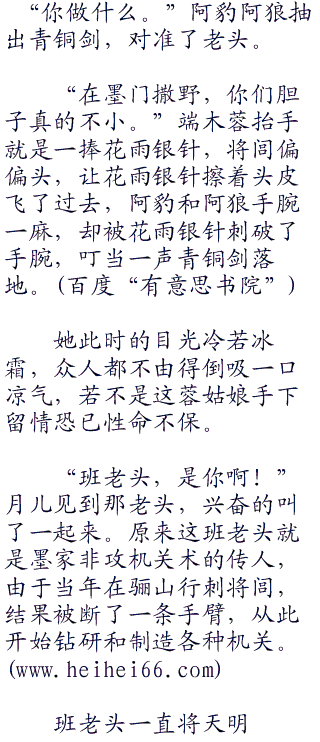 “你做什么。”阿豹阿狼抽
出青铜剑，对准了老头。
“在墨门撒野，你们胆
子真的不小。”端木蓉抬手
就是一捧花雨银针，将闾偏
偏头，让花雨银针擦着头皮
飞了过去，阿豹和阿狼手腕
一麻，却被花雨银针刺破了
手腕，叮当一声青铜剑落
地。(百度“有意思书院”)
她此时的目光冷若冰
霜，众人都不由得倒吸一口
凉气，若不是这蓉姑娘手下
留情恐已性命不保。
“班老头，是你啊！”
月儿见到那老头，兴奋的叫
了一起来。原来这班老头就
是墨家非攻机关术的传人，
由于当年在骊山行刺将闾，
结果被断了一条手臂，从此
开始钻研和制造各种机关。
(www.heihei66.com)
班老头一直将天明